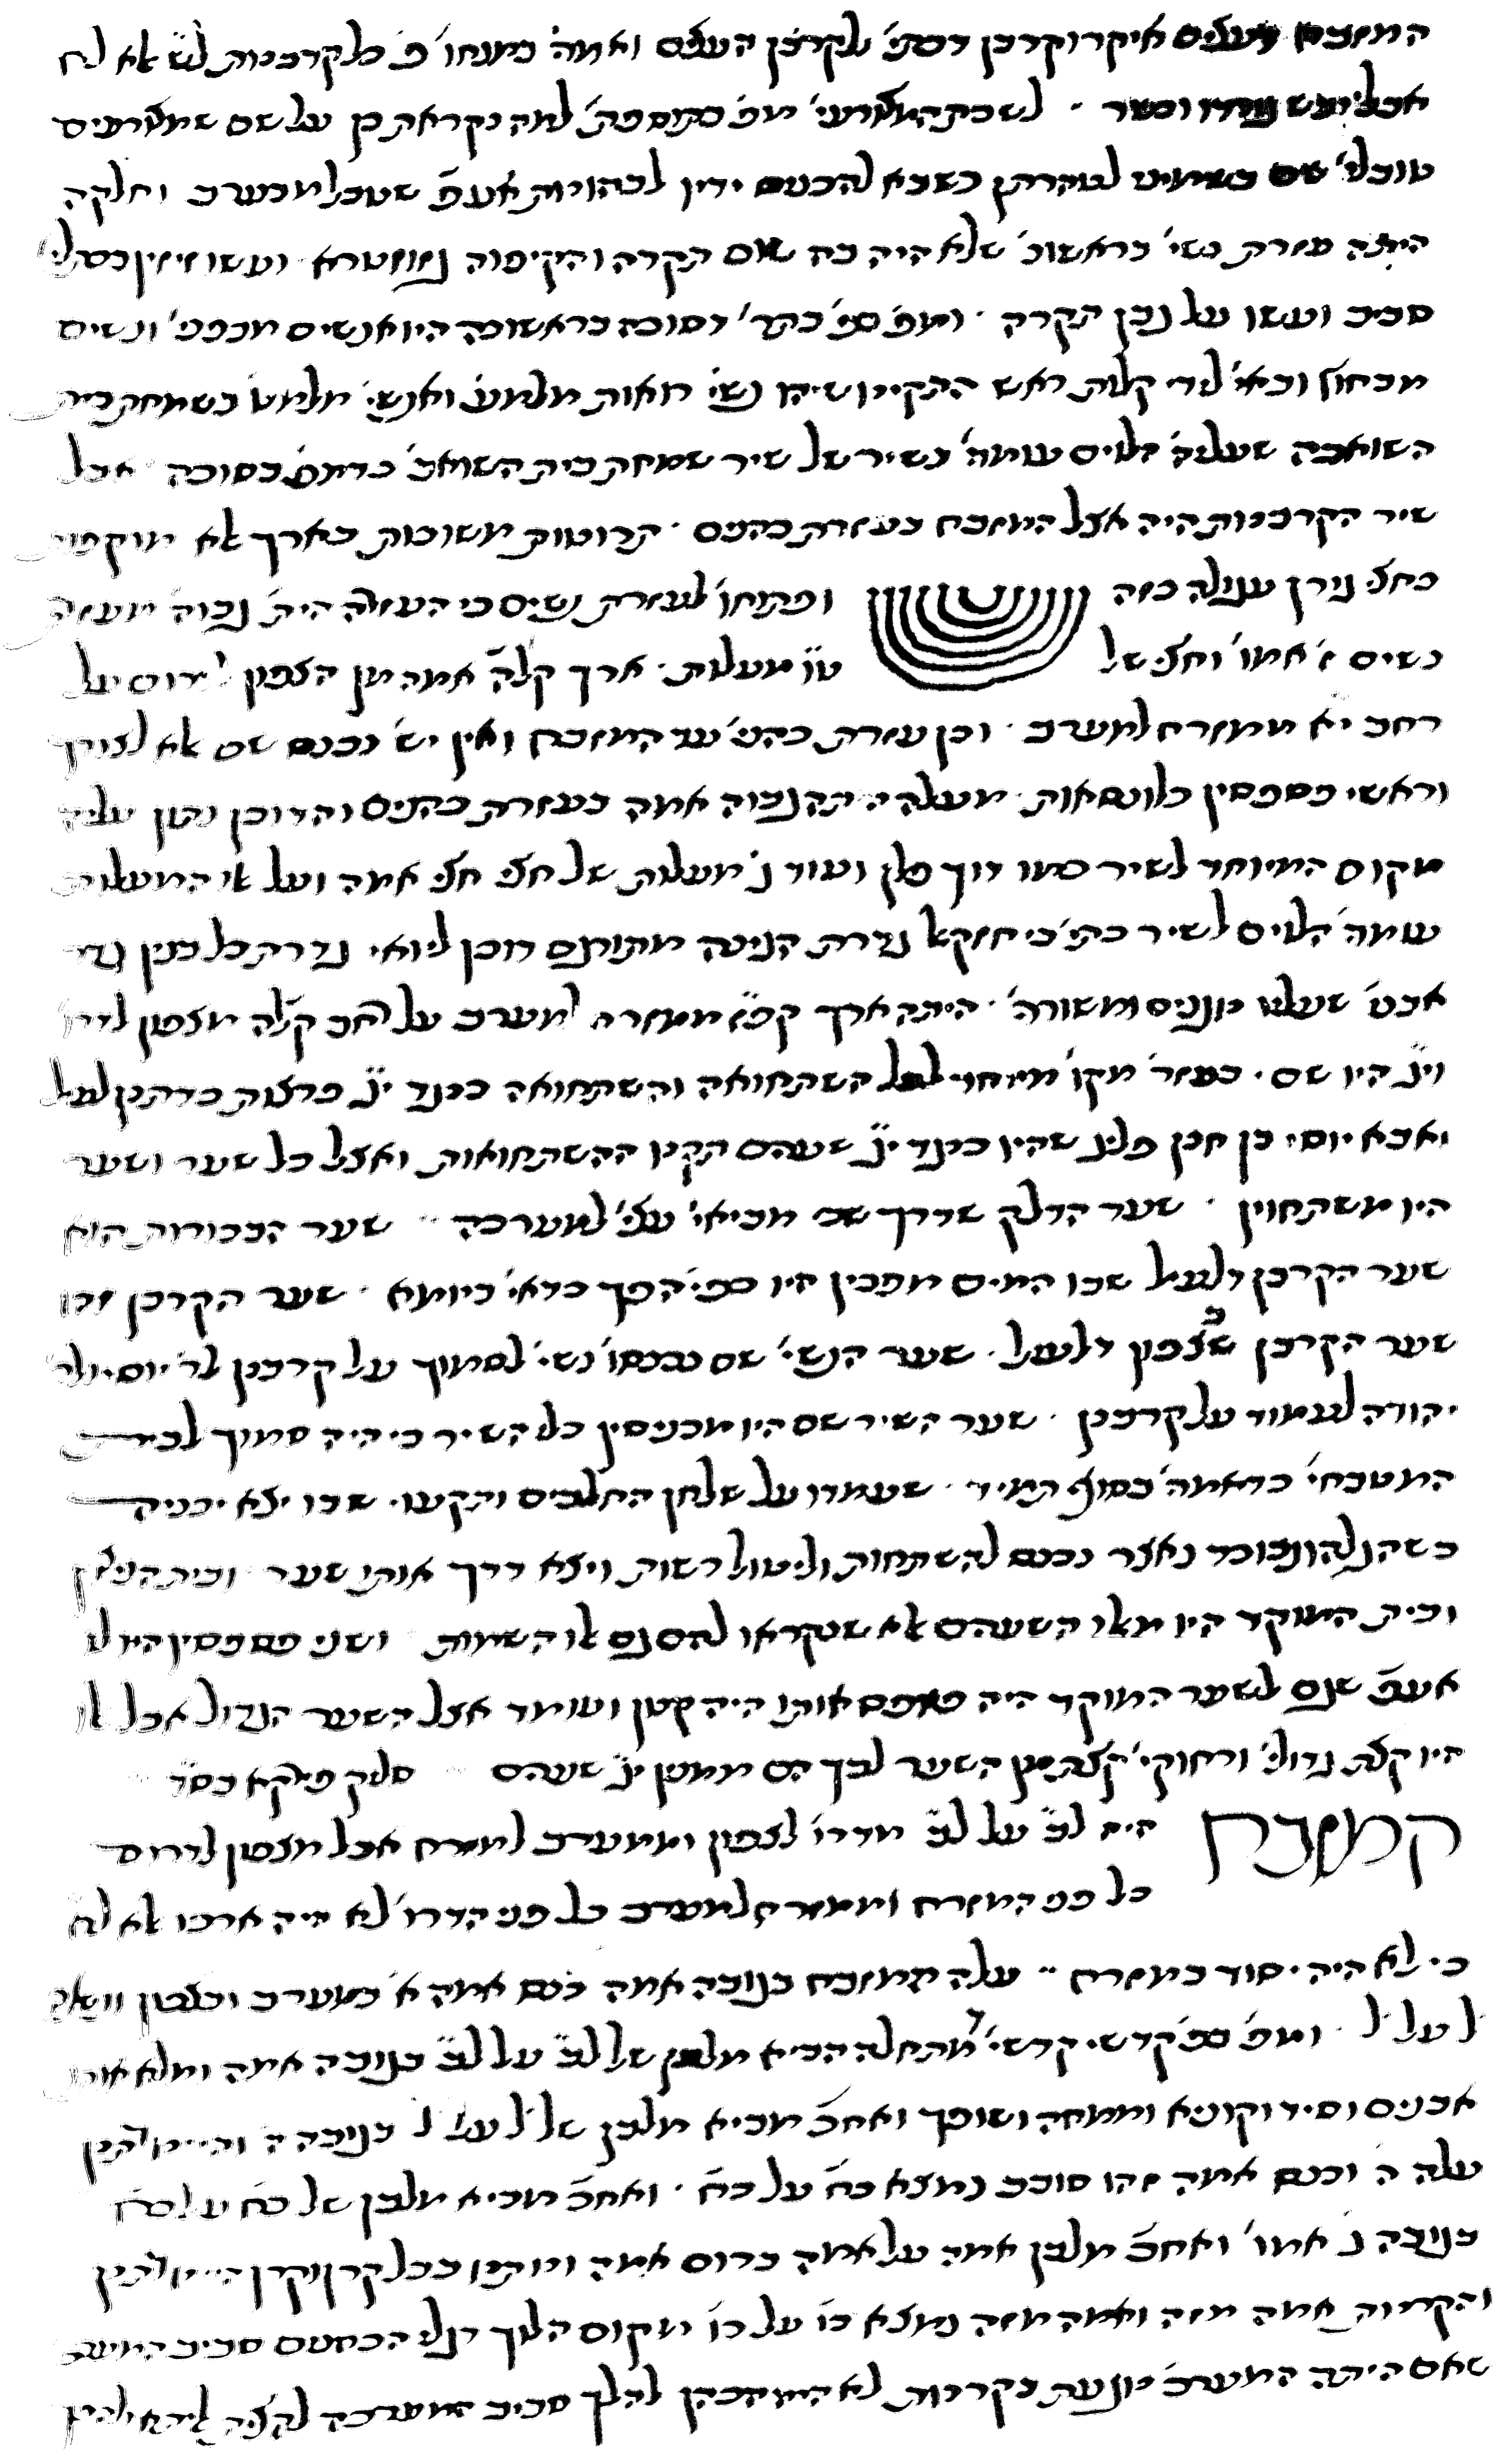 המזבח ועצים איקרו קרבן דסתם נקרבן העצים ואחה במנחו' פ' כל קרבנות לש אלא לח
אבל יבש גוזזו וכשר · לשכת המצורעי' מפ' בתוספת' למה נקראת כן על שם שמצורעים
טובלי' שם בשמיני לטהרתן כשבא להכניס ידיו לבהונות אעפ שטבל מבערב וחלקה
היתה עזרת נשי' בראשונ' שלא היה בה שום תקרה והקיפוה גזוזטרא ועשו זיזין בכתלי'
סביב ועשו על גבן תקרה · ומפ' סוף' בהח' דסוכה בראשונה היו אנשים מבפני' ונשים
מבחוץ ובאי' לידי קלות ראש התקינו שיהו נשי' רואות מלמע' ואנשי' מלמט' בשמחת בית
השואבה שעליה' הלוים עומד' בשיר של שיר שמחת בית השואב' כדתנן בסוכה אבל
שיר הקרבנות היה אצל המזבח בעזרת כהנים · תרוטות משוכות בארך לא מוקפות
כחצי גורן עגולה כזה ופתוחו' לעזרת נשים כי העזרה הית' גבוה' מעזרת
נשים ז' אמו' וחצי של טו מעלות · ארך קלה אמה מן הצפון לדרום על
רחב יא ממזרח למערב · וכן עזרת כהני' עד המזבח ואין יש' נכנס שם אלא לצורך
וראשי פספסין כלונסאות · מעלה היתה גבוה אמה בעזרת כהנים והדוכן נתון עליה
מקום המיוחד לשיר כמו דוך פלן ועוד ג' מעלות של חצי חצי אמה ועל אי המעלות
עומד' הלוים לשיר כתי' כי חזקא גדרת הניגה מתורגם דוכן ליואי גדרת כל בנין גדר
אבני' שעליו בונים ומשורר' · היתה ארך קפז ממזרח למערב על רחב קלה מצפון לדרו'
ויג היו שם · בעזר' מקו' מיוחד לכל השתחואה והשתחואה כנגד יג פרצות כדתנן לעיל
ואבא יוסי בן חנן פליג שהיו כנגד יג שערים תקינו ההשתחואות ואצל כל שער ושער
היו משתחוין · שער הדלק שדרך שם מביאי' עצי' למערכה · שער הבכורות הוא
שער הקרבן דלעיל שבו המים מפכין חיו מפי' הפך כדאי' ביומא · שער הקרבן זהו
שער הקרבן שבצפון דלעיל · שער הנשי' שם נכנסו' נשי' לסמוך על קרבנן לר' יוסי ולר'
יהודה לעמוד על קרבנן · שער השיר שם היו מכניסין כלי השיר כי היה סמוך לבית
המטבחי' כדאמר' בסוף תמיד · שעמדו על שלחן החלבים ותקעו · שבו יצא יכניה
כשהגלהו נבוכד נאצר נכנס להשתחות וליטול רשות ויצא דרך אותו שער ובית הניצוץ
ובית המוקד היו מאלו השערים אלא שנקראו להם גם אלו השמות ושני פספסין היו לו
אעפ שגם לשער המוקד היה פספס אותו היה קטן ועומד אצל השער הגדול אבל אלו
היו קצת גדולי' ורחוקי' קצת מן השער לכך הם ממנין יג שערים סליק פירקא בסד
המזבח היה לב על לב מדרו' לצפון וממערב למזרח אבל מצפון לדרום
כל פני המזרח וממזרח למערב כל פני הדרו' לא היה ארכו אלא לא
כי לא היה יסוד במזרח · עלה המזבח בגובה אמה כנס אמה א' במערב ובצפון ונשאר
ל על ל · ומפ' בפ' קדשי קדשי' דמתחלה הביא מלבן של לב על לב בגובה אמה ומלא אותו
אבנים וסיד וקוניא וממחה ושופך ואחכ מביא מלבן של ל על ל בגובה ה והיינו דתנן
עלה ה' וכנס אמה זהו סובב נמצא כח על כח · ואחכ מביא מלבן של כח על כח
בגובה ג' אמו' ואחכ מלבן אמה על אמה ברום אמה ויתנו בכל קרן וקרן היינו דתנן
והקרנות אמה מזה ואמה מזה נמצא כו על כו מקום הלוך רגלי הכהנים סביב המער'
שאם היתה המערכ' נוגעת בקרנות לא היה הכהן להלך סביב המערכה לקצוה